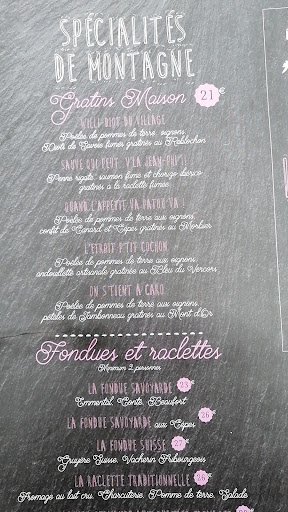 SPÉCIALITÉS
DE MONTAGNE
Gratins Maison 21€
VIELI-DIOT DU VILLAGE
Poêlée de pommes de terre, oignons,
Diots de Savoie fumés gratinés au Reblochon
SAUVE QUI PEUT, V'LA JEAN-PI !
Penne rigate, saumon fumé et chorizo ibérico
gratinés à la raclette fumée
QUAND L'APPÉTIT VA PATHO VA !
Poêlée de pommes de terre aux oignons,
confit de Canard et Cèpes gratinés au Morbier
L'ÉTROIT P'TIT COCHON
Poêlée de pommes de terre aux oignons,
andouillette artisanale gratinée au Bleu du Vercors
ON S'TIENT À CARO
Poêlée de pommes de terre aux oignons,
pétales de Jambonneau gratinés au Mont d'Or
Fondues et raclettes
Minimum 2 personnes
LA FONDUE SAVOYARDE
Emmental, Comté, Beaufort
LA FONDUE SAVOYARDE aux Cèpes 26€
LA FONDUE SUISSE 27€
Gruyère Suisse, Vacherin Fribourgeois
LA RACLETTE TRADITIONNELLE
Fromage au lait cru, Charcuterie, Pomme de terre, Salade